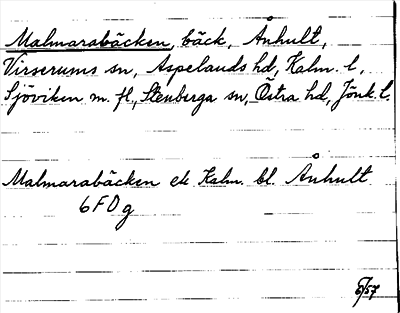 Malmarabäcken, bäck, Ånhult,
Virserums sn, Aspelands hd, Kalm. l.,
Sjöviken m. fl., Stenberga sn, Östra hd, Jönk. l.
Malmarabäcken ek Kalm. bl. Ånhult
6F0g
6/57